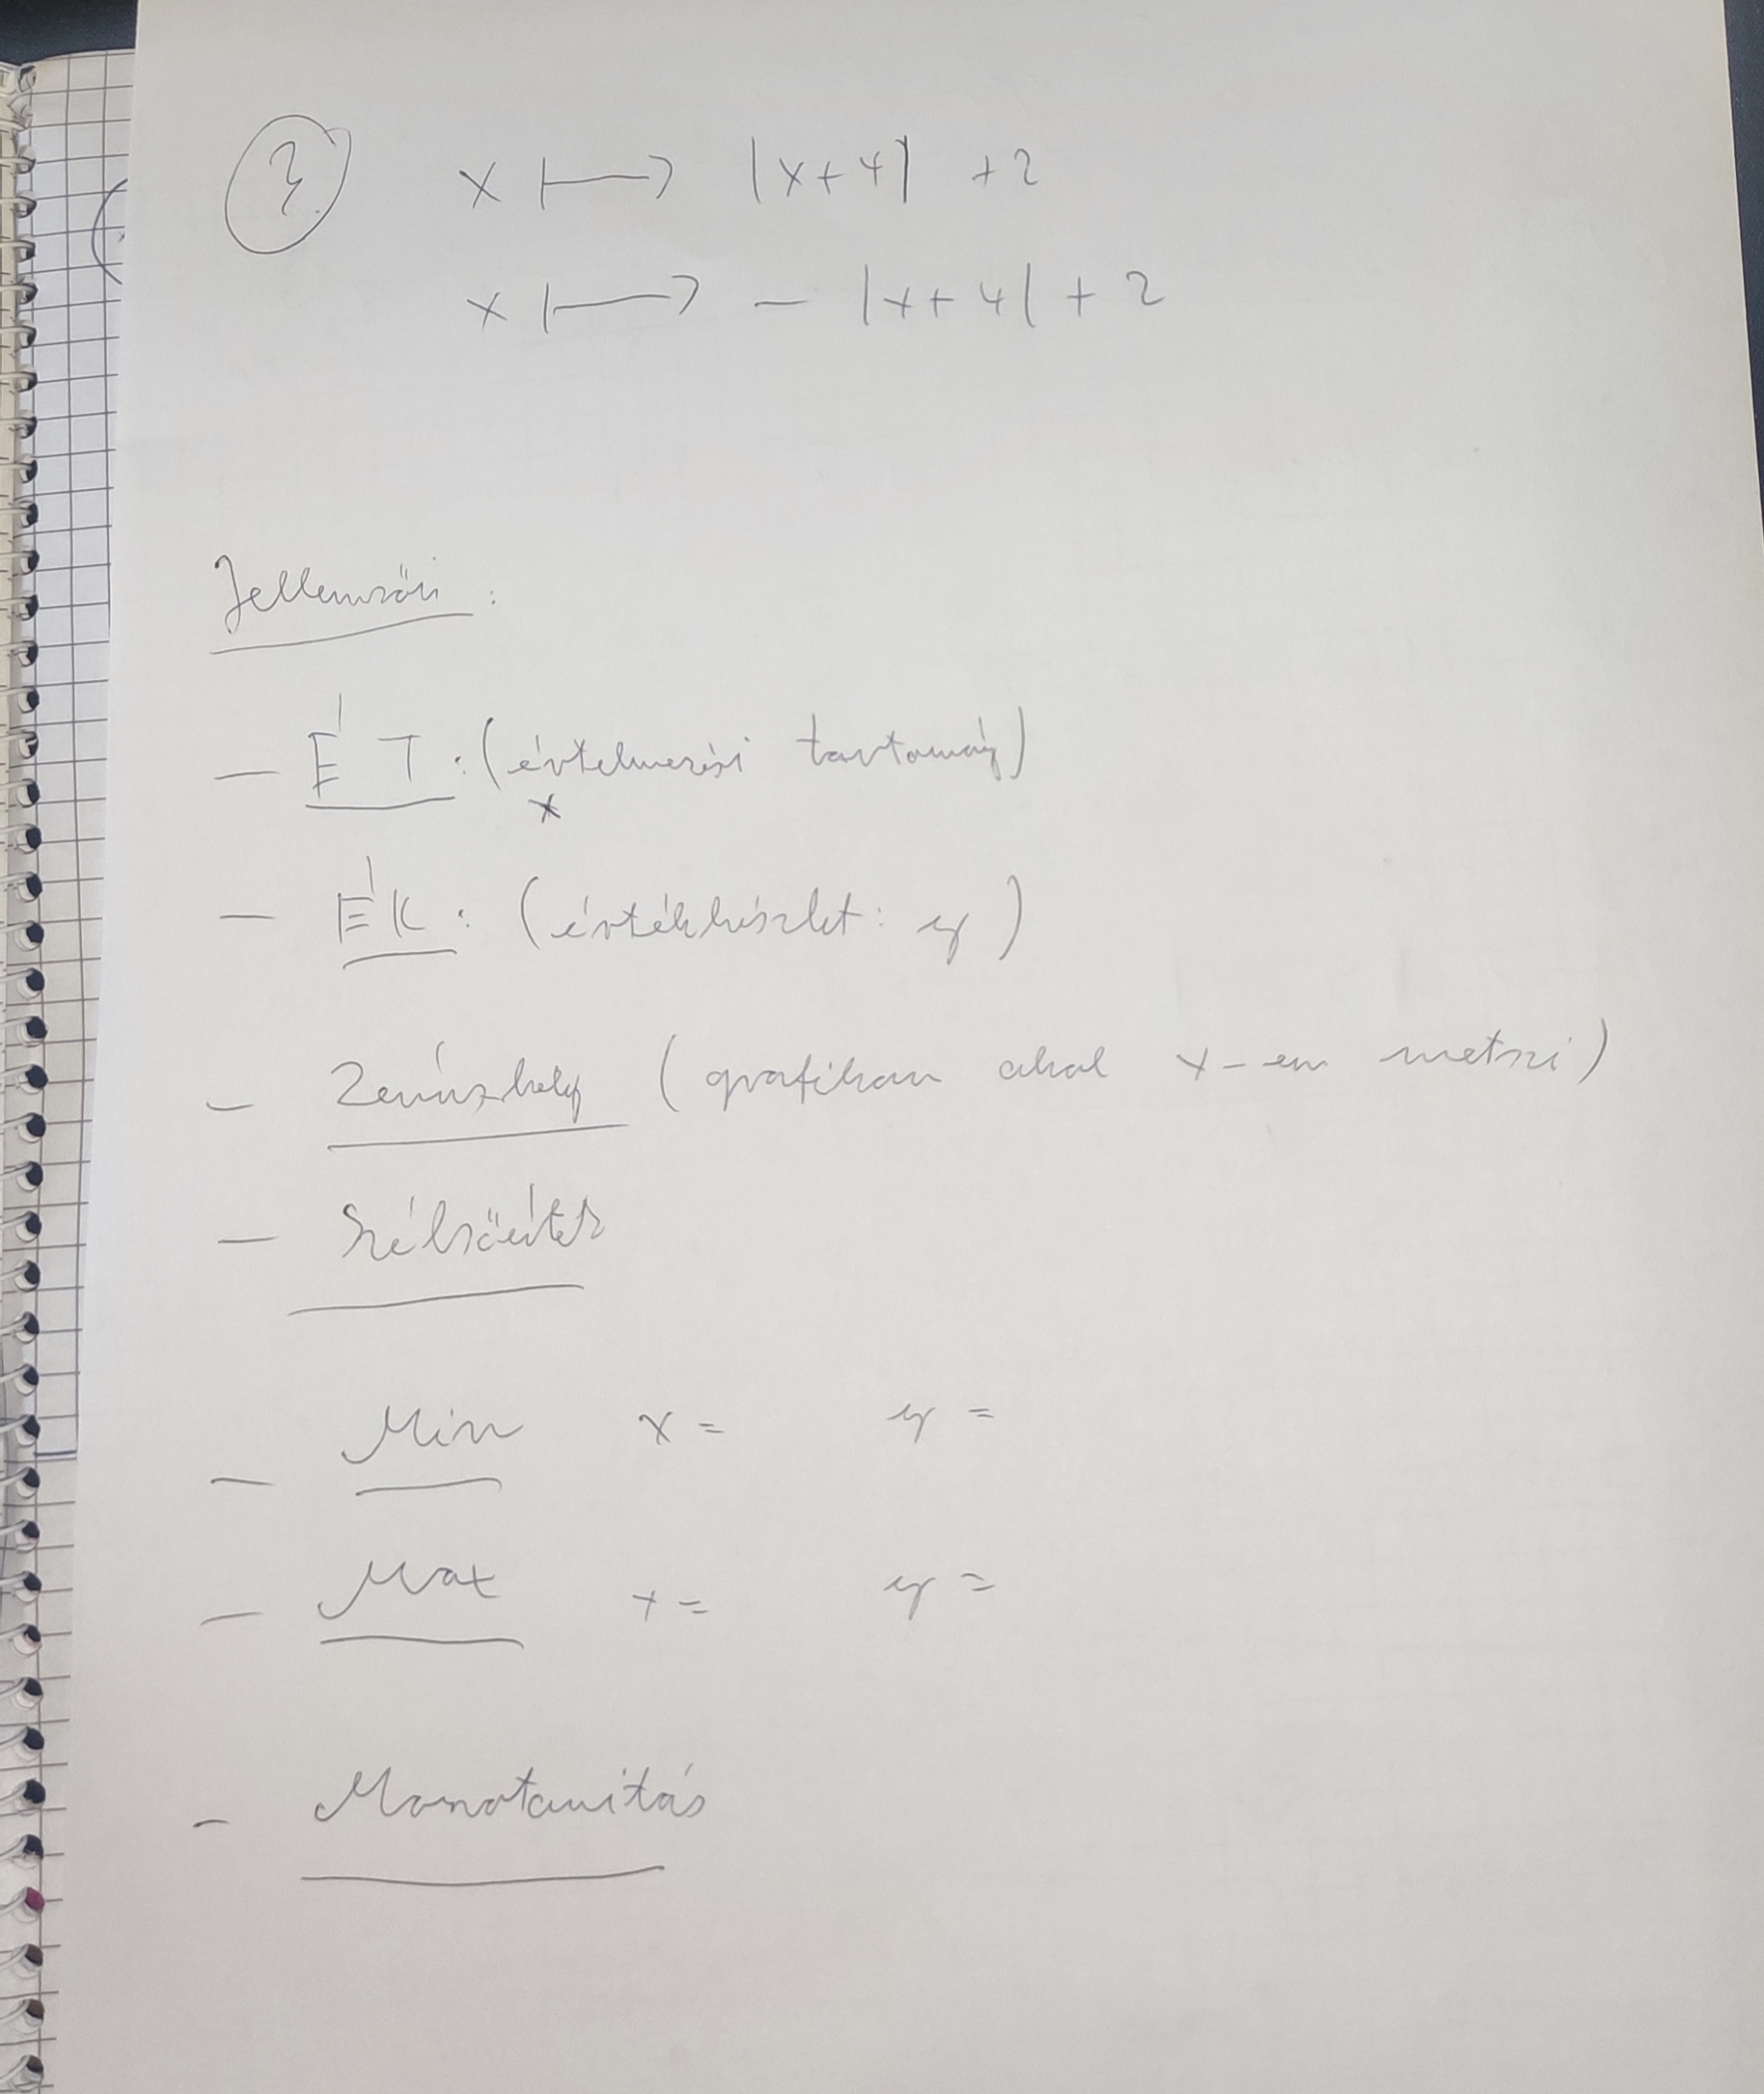 3. x ↦ |x+4| +2
x ↦ - |x+4| + 2
Jellemzői:
- ÉT: (értelmezési tartomány)
x
- ÉK: (értékkészlet: y)
- Zérúshely (grafikon ahol x-en metszi)
- Szélsőérték
- Min x= y=
- Max x= y=
- Monotonitás